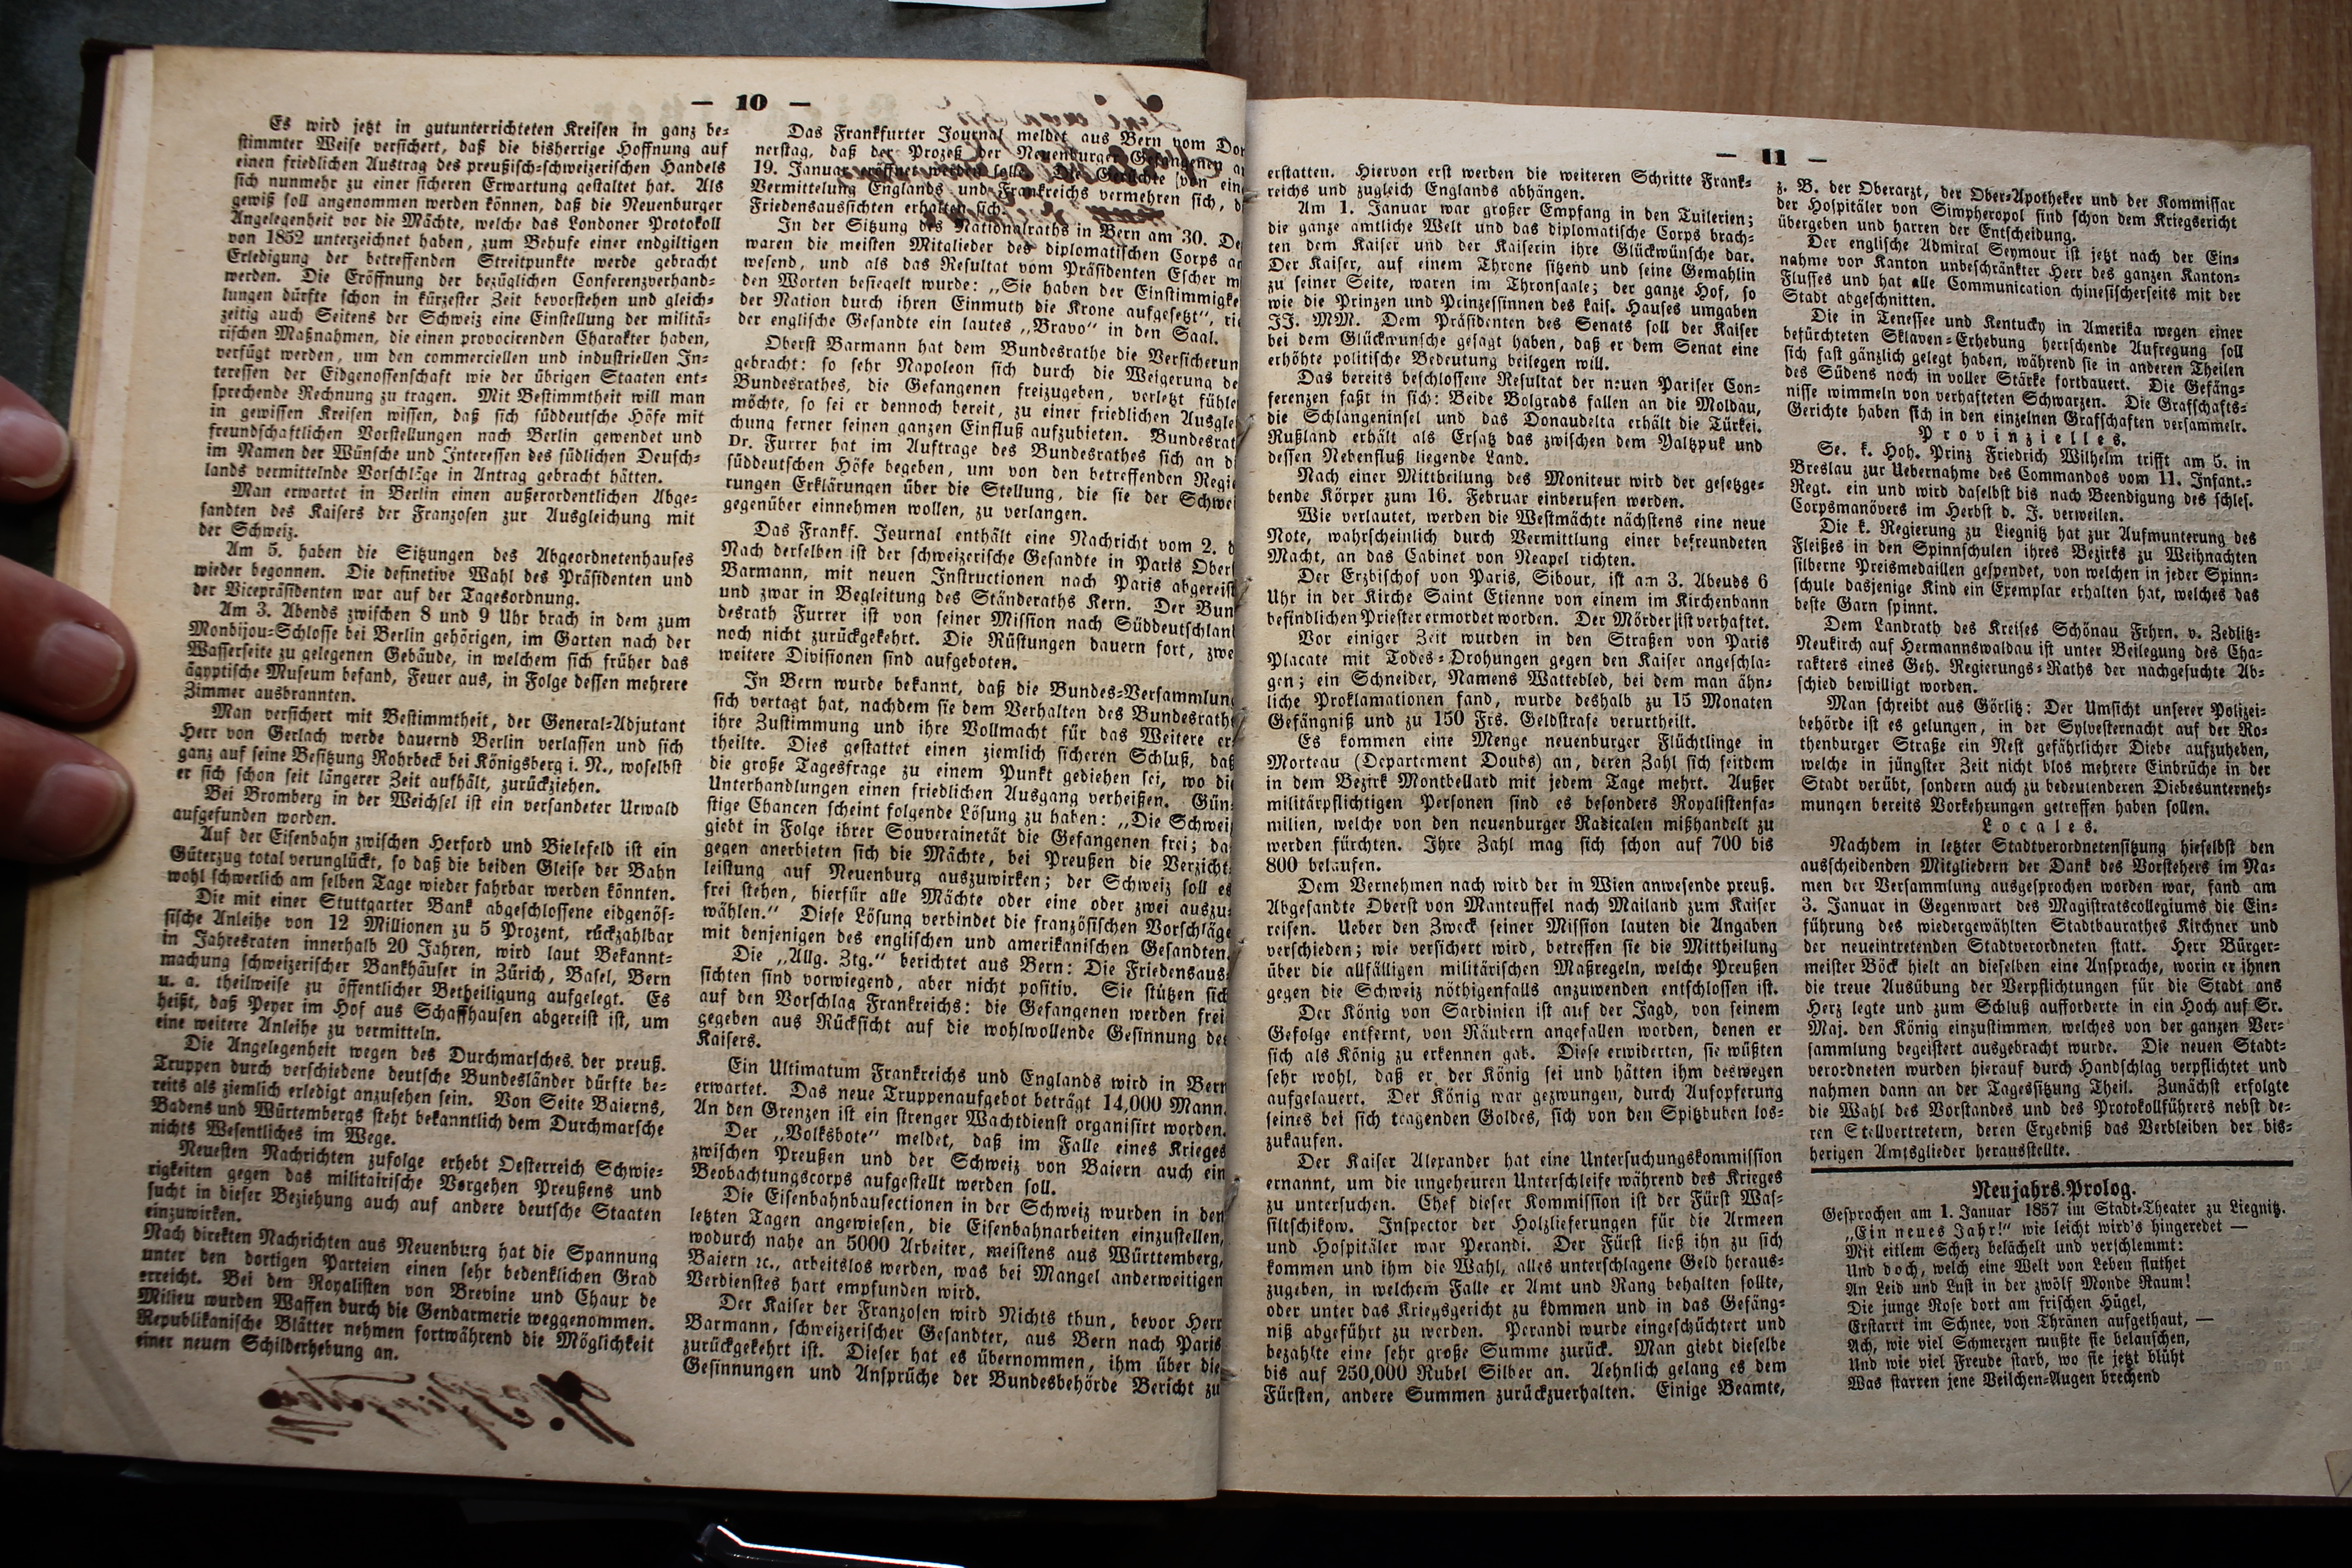 — 10 —
Es wird jetzt in gutunterrichteten Kreisen in ganz be-
stimmter Weise versichert, daß die bisherrige Hoffnung auf
einen friedlichen Austrag des preußisch-schweizerischen Handels
sich nunmehr zu einer sicheren Erwartung gestaltet hat. Als
gewiß soll angenommen werden können, daß die Neuenburger
Angelegenheit vor die Mächte, welche das Londoner Protokoll
von 1852 unterzeichnet haben, zum Behufe einer endgiltigen
Erledigung der betreffenden Streitpunkte werde gebracht
werden. Die Eröffnung der bezüglichen Conferenzverhand-
lungen dürfte schon in kürzester Zeit bevorstehen und gleich-
zeitig auch Seitens der Schweiz eine Einstellung der militä-
rischen Maßnahmen, die einen provocirenden Charakter haben,
verfügt werden, um den commerciellen und industriellen In-
teressen der Eidgenossenschaft wie der übrigen Staaten ent-
sprechende Rechnung zu tragen. Mit Bestimmtheit will man
in gewissen Kreisen wissen, daß sich süddeutsche Höfe mit
freundschaftlichen Vorstellungen nach Berlin gewendet und
im Namen der Wünsche und Interessen des südlichen Deusch-
lands vermittelnde Vorschläge in Antrag gebracht hätten.
Man erwartet in Berlin einen außerordentlichen Abge-
sandten des Kaisers der Franzosen zur Ausgleichung mit
der Schweiz.
Am 5. haben die Sitzungen des Abgeordnetenhauses
wieder begonnen. Die definetive Wahl des Präsidenten und
der Vicepräsidenten war auf der Tagesordnung.
Am 3. Abends zwischen 8 und 9 Uhr brach in dem zum
Monbijou-Schlosse bei Berlin gehörigen, im Garten nach der
Wasserseite zu gelegenen Gebäude, in welchem sich früher das
ägyptische Museum befand, Feuer aus, in Folge dessen mehrere
Zimmer ausbrannten.
Man versichert mit Bestimmtheit, der General-Adjutant
Herr von Gerlach werde dauernd Berlin verlassen und sich
ganz auf seine Besitzung Rohrbeck bei Königsberg i. N., woselbst
er sich schon seit längerer Zeit aufhält, zurückziehen.
Bei Bromberg in der Weichsel ist ein versandeter Urwald
aufgefunden worden.
Auf der Eisenbahn zwischen Herford und Bielefeld ist ein
Güterzug total verunglückt, so daß die beiden Gleise der Bahn
wohl schwerlich am selben Tage wieder fahrbar werden könnten.
Die mit einer Stuttgarter Bank abgeschlossene eidgenös-
sische Anleihe von 12 Millionen zu 5 Prozent, rückzahlbar
in Jahresraten innerhalb 20 Jahren, wird laut Bekannt-
machung schweizerischer Bankhäuser in Zürich, Basel, Bern
u. a. theilweise zu öffentlicher Betheiligung aufgelegt. Es
heißt, daß Peyer im Hof aus Schaffhausen abgereist ist, um
eine weitere Anleihe zu vermitteln.
Die Angelegenheit wegen des Durchmarsches der preuß.
Truppen durch verschiedene deutsche Bundesländer dürfte be-
reits als ziemlich erledigt anzusehen sein. Von Seite Baierns,
Badens und Würtembergs steht bekanntlich dem Durchmarsche
nichts Wesentliches im Wege.
Neuesten Nachrichten zufolge erhebt Oesterreich Schwie-
rigkeiten gegen das militairische Vorgehen Preußens und
sucht in dieser Beziehung auch auf andere deutsche Staaten
einzuwirken.
Nach direkten Nachrichten aus Neuenburg hat die Spannung
unter den dortigen Parteien einen sehr bedenklichen Grad
erreicht. Bei den Royalisten von Brevine und Chaux de
Milieu wurden Waffen durch die Gendarmerie weggenommen.
Republikanische Blätter nehmen fortwährend die Möglichkeit
einer neuen Schilderhebung an.
Das Frankfurter Journal meldet aus Bern vom Don
nerstag, daß der Prozeß der Neuenburger Gefangenen a
19. Januar eröffnet werden solle. Die Gerüchte von ein
Vermittelung Englands und Frankreichs vermehren sich, d
Friedensaussichten erhalten sich.
In der Sitzung des Nationalraths in Bern am 30. De
waren die meisten Mitglieder des diplomatischen Corps a
wesend, und als das Resultat vom Präsidenten Escher m
den Worten besiegelt wurde: „Sie haben der Einstimmigke
der Nation durch ihren Einmuth die Krone aufgesetzt", rie
der englische Gesandte ein lautes „Bravo" in den Saal.
Oberst Barmann hat dem Bundesrathe die Versicherun
gebracht: so sehr Napoleon sich durch die Weigerung de
Bundesrathes, die Gefangenen freizugeben, verletzt fühle
möchte, so sei er dennoch bereit, zu einer friedlichen Ausglei
chung ferner seinen ganzen Einfluß aufzubieten. Bundesrat
Dr. Furrer hat im Auftrage des Bundesrathes sich an di
süddeutschen Höfe begeben, um von den betreffenden Regie
rungen Erklärungen über die Stellung, die sie der Schwei
gegenüber einnehmen wollen, zu verlangen.
Das Frankf. Journal enthält eine Nachricht vom 2. d
Nach derselben ist der schweizerische Gesandte in Paris Obers
Barmann, mit neuen Instructionen nach Paris abgereist
und zwar in Begleitung des Ständeraths Kern. Der Bun
desrath Furrer ist von seiner Mission nach Süddeutschland
noch nicht zurückgekehrt. Die Rüstungen dauern fort, zwe
weitere Divisionen sind aufgeboten.
In Bern wurde bekannt, daß die Bundes-Versammlung
sich vertagt hat, nachdem sie dem Verhalten des Bundesraths
ihre Zustimmung und ihre Vollmacht für das Weitere er-
theilte. Dies gestattet einen ziemlich sicheren Schluß, daß
die große Tagesfrage zu einem Punkt gediehen sei, wo die
Unterhandlungen einen friedlichen Ausgang verheißen. Gün-
stige Chancen scheint folgende Lösung zu haben: „Die Schweiz
giebt in Folge ihrer Souverainetät die Gefangenen frei; da-
gegen anerbieten sich die Mächte, bei Preußen die Verzicht-
leistung auf Neuenburg auszuwirken; der Schweiz soll es
frei stehen, hierfür alle Mächte oder eine oder zwei auszu-
wählen." Diese Lösung verbindet die französischen Vorschläge
mit denjenigen des englischen und amerikanischen Gesandten.
Die „Allg. Ztg." berichtet aus Bern: Die Friedensaus-
sichten sind vorwiegend, aber nicht positiv. Sie stützen sich
auf den Vorschlag Frankreichs: die Gefangenen werden frei-
gegeben aus Rücksicht auf die wohlwollende Gesinnung des
Kaisers.
Ein Ultimatum Frankreichs und Englands wird in Bern
erwartet. Das neue Truppenaufgebot beträgt 14,000 Mann.
An den Grenzen ist ein strenger Wachtdienst organisirt worden.
Der „Volksbote" meldet, daß im Falle eines Krieges
zwischen Preußen und der Schweiz von Baiern auch ein
Beobachtungscorps aufgestellt werden soll.
Die Eisenbahnbausectionen in der Schweiz wurden in den
letzten Tagen angewiesen, die Eisenbahnarbeiten einzustellen,
wodurch nahe an 5000 Arbeiter, meistens aus Württemberg,
Baiern ꝛc., arbeitslos werden, was bei Mangel anderweitigen
Verdienstes hart empfunden wird.
Der Kaiser der Franzosen wird Nichts thun, bevor Herr
Barmann, schweizerischer Gesandter, aus Bern nach Paris
zurückgekehrt ist. Dieser hat es übernommen, ihm über die
Gesinnungen und Ansprüche der Bundesbehörde Bericht zu
— 11 —
erstatten. Hiervon erst werden die weiteren Schritte Frank-
reichs und zugleich Englands abhängen.
Am 1. Januar war großer Empfang in den Tuilerien;
die ganze amtliche Welt und das diplomatische Corps brach-
ten dem Kaiser und der Kaiserin ihre Glückwünsche dar.
Der Kaiser, auf einem Throne sitzend und seine Gemahlin
zu seiner Seite, waren im Thronsaale; der ganze Hof, so
wie die Prinzen und Prinzessinnen des kais. Hauses umgaben
JJ. MM. Dem Präsidenten des Senats soll der Kaiser
bei dem Glückwunsche gesagt haben, daß er dem Senat eine
erhöhte politische Bedeutung beilegen will.
Das bereits beschlossene Resultat der neuen Pariser Con-
ferenzen faßt in sich: Beide Bolgrads fallen an die Moldau,
die Schlangeninsel und das Donaudelta erhält die Türkei.
Rußland erhält als Ersatz das zwischen dem Yaltzpuk und
dessen Nebenfluß liegende Land.
Nach einer Mittheilung des Moniteur wird der gesetzge-
bende Körper zum 16. Februar einberufen werden.
Wie verlautet, werden die Westmächte nächstens eine neue
Note, wahrscheinlich durch Vermittlung einer befreundeten
Macht, an das Cabinet von Neapel richten.
Der Erzbischof von Paris, Sibour, ist am 3. Abends 6
Uhr in der Kirche Saint Etienne von einem im Kirchenbann
befindlichen Priester ermordet worden. Der Mörder ist verhaftet.
Vor einiger Zeit wurden in den Straßen von Paris
Placate mit Todes-Drohungen gegen den Kaiser angeschla-
gen; ein Schneider, Namens Wattebled, bei dem man ähn-
liche Proklamationen fand, wurde deshalb zu 15 Monaten
Gefängniß und zu 150 Frs. Geldstrafe verurtheilt.
Es kommen eine Menge neuenburger Flüchtlinge in
Morteau (Departement Doubs) an, deren Zahl sich seitdem
in dem Bezirk Montbellard mit jedem Tage mehrt. Außer
militärpflichtigen Personen sind es besonders Royalistenfa-
milien, welche von den neuenburger Radicalen mißhandelt zu
werden fürchten. Ihre Zahl mag sich schon auf 700 bis
800 belaufen.
Dem Vernehmen nach wird der in Wien anwesende preuß.
Abgesandte Oberst von Manteuffel nach Mailand zum Kaiser
reisen. Ueber den Zweck seiner Mission lauten die Angaben
verschieden; wie versichert wird, betreffen sie die Mittheilung
über die allfälligen militärischen Maßregeln, welche Preußen
gegen die Schweiz nöthigenfalls anzuwenden entschlossen ist.
Der König von Sardinien ist auf der Jagd, von seinem
Gefolge entfernt, von Räubern angefallen worden, denen er
sich als König zu erkennen gab. Diese erwiderten, sie wüßten
sehr wohl, daß er der König sei und hätten ihm deswegen
aufgelauert. Der König war gezwungen, durch Aufopferung
seines bei sich tragenden Goldes, sich von den Spitzbuben los-
zukaufen.
Der Kaiser Alexander hat eine Untersuchungskommission
ernannt, um die ungeheuren Unterschleife während des Krieges
zu untersuchen. Chef dieser Kommission ist der Fürst Was-
siltschikow. Inspector der Holzlieferungen für die Armeen
und Hospitäler war Perandi. Der Fürst ließ ihn zu sich
kommen und ihm die Wahl, alles unterschlagene Geld heraus-
zugeben, in welchem Falle er Amt und Rang behalten sollte,
oder unter das Kriegsgericht zu kommen und in das Gefäng-
niß abgeführt zu werden. Perandi wurde eingeschüchtert und
bezahlte eine sehr große Summe zurück. Man giebt dieselbe
bis auf 250,000 Rubel Silber an. Aehnlich gelang es dem
Fürsten, andere Summen zurückzuerhalten. Einige Beamte,
z. B. der Oberarzt, der Ober-Apotheker und der Kommissar
der Hospitäler von Simpheropol sind schon dem Kriegsericht
übergeben und harren der Entscheidung.
Der englische Admiral Seymour ist jetzt nach der Ein-
nahme von Kanton unbeschränkter Herr des ganzen Kanton-
Flusses und hat alle Communication chinesischerseits mit der
Stadt abgeschnitten.
Die in Tenessee und Kentucky in Amerika wegen einer
befürchteten Sklaven-Erhebung herrschende Aufregung soll
sich fast gänzlich gelegt haben, während sie in anderen Theilen
des Südens noch in voller Stärke fortdauert. Die Gefäng-
nisse wimmeln von verhafteten Schwarzen. Die Grafschafts-
Gerichte haben sich in den einzelnen Grafschaften versammelt.
Provinzielles.
Se. k. Hoh. Prinz Friedrich Wilhelm trifft am 5. in
Breslau zur Uebernahme des Commandos vom 11. Infant.-
Regt. ein und wird daselbst bis nach Beendigung des schles.
Corpsmanövers im Herbst d. J. verweilen.
Die k. Regierung zu Liegnitz hat zur Aufmunterung des
Fleißes in den Spinnschulen ihres Bezirks zu Weihnachten
silberne Preismedaillen gespendet, von welchen in jeder Spinn-
schule dasjenige Kind ein Exemplar erhalten hat, welches das
beste Garn spinnt.
Dem Landrath des Kreises Schönau Frhrn. v. Zedlitz-
Neukirch auf Hermannswaldau ist unter Beilegung des Cha-
rakters eines Geh. Regierungs-Raths der nachgesuchte Ab-
schied bewilligt worden.
Man schreibt aus Görlitz: Der Umsicht unserer Polizei-
behörde ist es gelungen, in der Sylvesternacht auf der Ro-
thenburger Straße ein Nest gefährlicher Diebe aufzuheben,
welche in jüngster Zeit nicht blos mehrere Einbrüche in der
Stadt verübt, sondern auch zu bedeutenderen Diebesunterneh-
mungen bereits Vorkehrungen getroffen haben sollen.
Locales.
Nachdem in letzter Stadtverordnetensitzung hieselbst den
ausscheidenden Mitgliedern der Dank des Vorstehers im Na-
men der Versammlung ausgesprochen worden war, fand am
3. Januar in Gegenwart des Magistratscollegiums die Ein-
führung des wiedergewählten Stadtbaurathes Kirchner und
der neueintretenden Stadtverordneten statt. Herr Bürger-
meister Böck hielt an dieselben eine Ansprache, worin er ihnen
die treue Ausübung der Verpflichtungen für die Stadt ans
Herz legte und zum Schluß aufforderte in ein Hoch auf Sr.
Maj. den König einzustimmen, welches von der ganzen Ver-
sammlung begeistert ausgebracht wurde. Die neuen Stadt-
verordneten wurden hierauf durch Handschlag verpflichtet und
nahmen dann an der Tagessitzung Theil. Zunächst erfolgte
die Wahl des Vorstandes und des Protokollführers nebst de-
ren Stellvertretern, deren Ergebniß das Verbleiben der bis-
herigen Amtsglieder herausstellte.
Neujahrs-Prolog.
Gesprochen am 1. Januar 1857 im Stadt-Theater zu Liegnitz.
„Ein neues Jahr!" wie leicht wird's hingeredet —
Mit eitlem Scherz belächelt und verschlemmt:
Und doch, welch eine Welt von Leben fluthet
An Leid und Lust in der zwölf Monde Raum!
Die junge Rose dort am frischen Hügel,
Erstarrt im Schnee, von Thränen aufgethaut, —
Ach, wie viel Schmerzen mußte sie belauschen,
Und wie viel Freude starb, wo sie jetzt blüht
Was starren jene Veilchen-Augen brechend